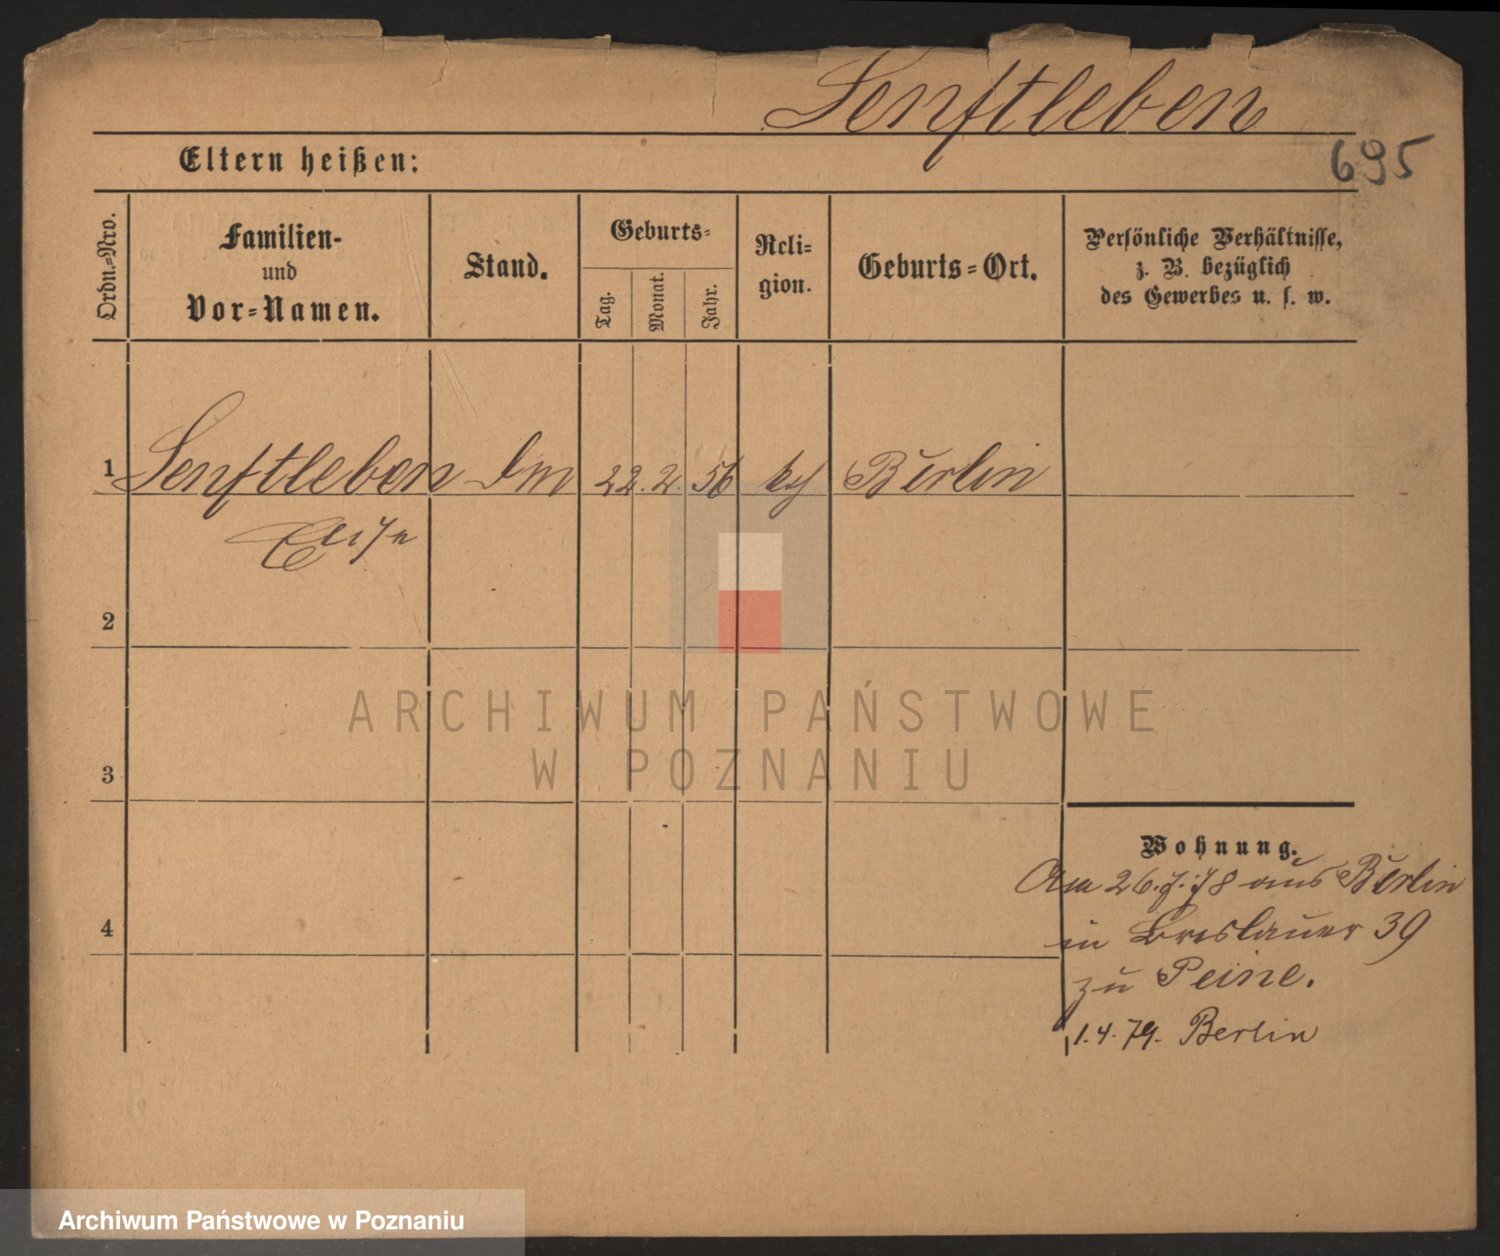 Senftleben
695
Eltern heißen:
Ordn.-Nro.
Familien-
und
Vor-Namen.
Stand.
Geburts-
Tag.
Monat.
Jahr.
Reli-
gion.
Geburts-Ort.
Persönliche Verhältnisse,
z. B. bezüglich
des Gewerbes u. s. w.
1 Senftleben 22. 2. 56 Berlin
2
3
4
Wohnung.
Am 26.7.78 aus Berlin
in Breslauer 39
zu Peine.
1.4.79. Berlin
ARCHIWUM PAŃSTWOWE
W POZNANIU
Archiwum Państwowe w Poznaniu